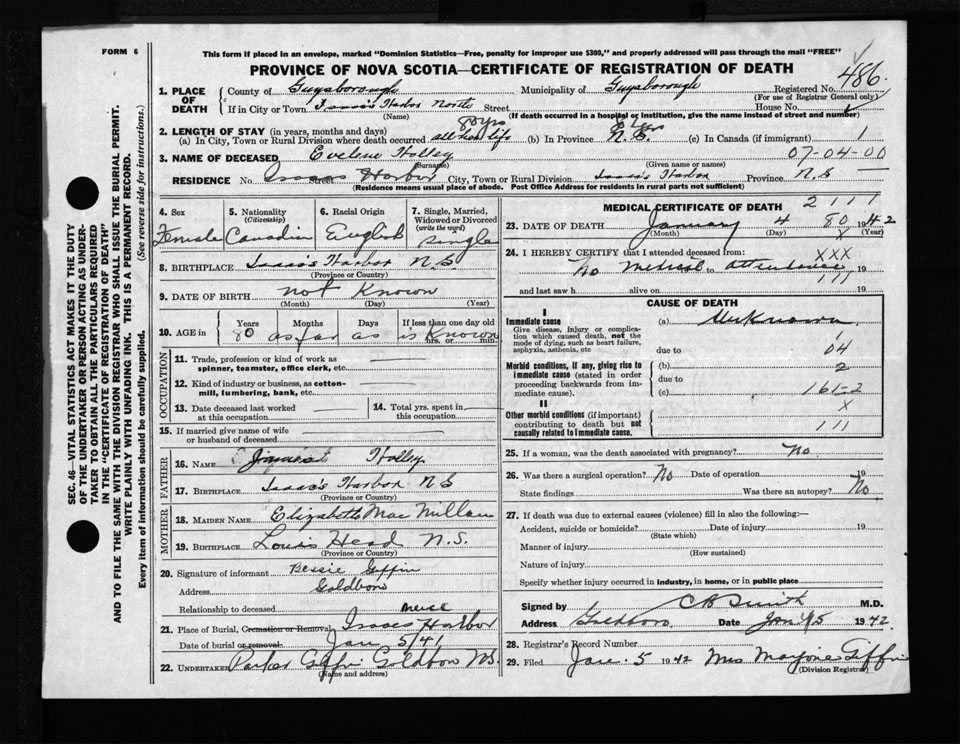 FORM 6
This form if placed in an envelope, marked "Dominion Statistics—Free, penalty for improper use $300," and properly addressed will pass through the mail "FREE"
PROVINCE OF NOVA SCOTIA—CERTIFICATE OF REGISTRATION OF DEATH
486
SEC. 46—VITAL STATISTICS ACT MAKES IT THE DUTY
OF THE UNDERTAKER OR PERSON ACTING AS UNDER-
TAKER TO OBTAIN ALL THE PARTICULARS REQUIRED
IN THE "CERTIFICATE OF REGISTRATION OF DEATH"
AND TO FILE THE SAME WITH THE DIVISION REGISTRAR WHO SHALL ISSUE THE BURIAL PERMIT.
WRITE PLAINLY WITH UNFADING INK. THIS IS A PERMANENT RECORD.
Every item of information should be carefully supplied. (See reverse side for Instructions.)
1. PLACE OF DEATH
County of Guysborough Municipality of Guysborough Registered No.
(For use of Registrar General only)
If in City or Town Isaac's Harbor North Street House No.
(Name) (If death occurred in a hospital or institution, give the name instead of street and number)
2. LENGTH OF STAY (in years, months and days) 80 yrs
(a) In City, Town or Rural Division where death occurred all her life (b) In Province N.S. (c) In Canada (if immigrant) 1
3. NAME OF DECEASED Evelene Holley 07-04-00
(Surname) (Given name or names)
RESIDENCE No. Isaacs Harbor Street City, Town or Rural Division Isaac's Harbor Province N.S
(Residence means usual place of abode. Post Office Address for residents in rural parts not sufficient)
4. Sex Female
5. Nationality (Citizenship) Canadian
6. Racial Origin English
7. Single, Married, Widowed or Divorced (write the word) Single
8. BIRTHPLACE Isaac's Harbor N.S
(Province or Country)
9. DATE OF BIRTH not Known
(Month) (Day) (Year)
10. AGE in Years Months Days If less than one day old
80 as far as is Known hrs. or min.
OCCUPATION
11. Trade, profession or kind of work as
spinner, teamster, office clerk, etc.
12. Kind of industry or business, as cotton-
mill, lumbering, bank, etc.
13. Date deceased last worked at this occupation
14. Total yrs. spent in this occupation
15. If married give name of wife
or husband of deceased
FATHER
16. NAME Holley
17. BIRTHPLACE Isaac's Harbor N S
(Province or Country)
MOTHER
18. MAIDEN NAME Elizabeth MacMillan
19. BIRTHPLACE Louis Head N.S.
(Province or Country)
20. Signature of informant Bessie Giffin
Address Goldboro
Relationship to deceased neice
21. Place of Burial, Cremation or Removal Isaacs Harbor
Date of burial or removal Jan 5/41
22. UNDERTAKER Parker Giffin Goldboro NS
(Name and address)
MEDICAL CERTIFICATE OF DEATH 2111
23. DATE OF DEATH January 4 80 1942
(Month) (Day) X (Year)
24. I HEREBY CERTIFY that I attended deceased from: XXX
No Medical to attendance 19
111
and last saw h alive on 19
CAUSE OF DEATH
I
Immediate cause (a) Unknown
Give disease, injury or complica-
tion which caused death, not the
mode of dying, such as heart failure,
asphyxia, asthenia, etc
due to 04
Morbid conditions, if any, giving rise to
immediate cause (stated in order
proceeding backwards from im-
mediate cause).
(b) 2
due to
(c) 161-2
II
Other morbid conditions (if important)
contributing to death but not
causally related to immediate cause.
X
111
25. If a woman, was the death associated with pregnancy? No
26. Was there a surgical operation? No Date of operation 19
State findings Was there an autopsy? No
27. If death was due to external causes (violence) fill in also the following:—
Accident, suicide or homicide? Date of injury 19
(State which)
Manner of injury
(How sustained)
Nature of injury
Specify whether injury occurred in industry, in home, or in public place
Signed by C B Smith M.D.
Address Goldboro Date Jan 4/5 1942
28. Registrar's Record Number
29. Filed Jan. 5 1942 Mrs Marjorie Giffin
(Division Registrar)